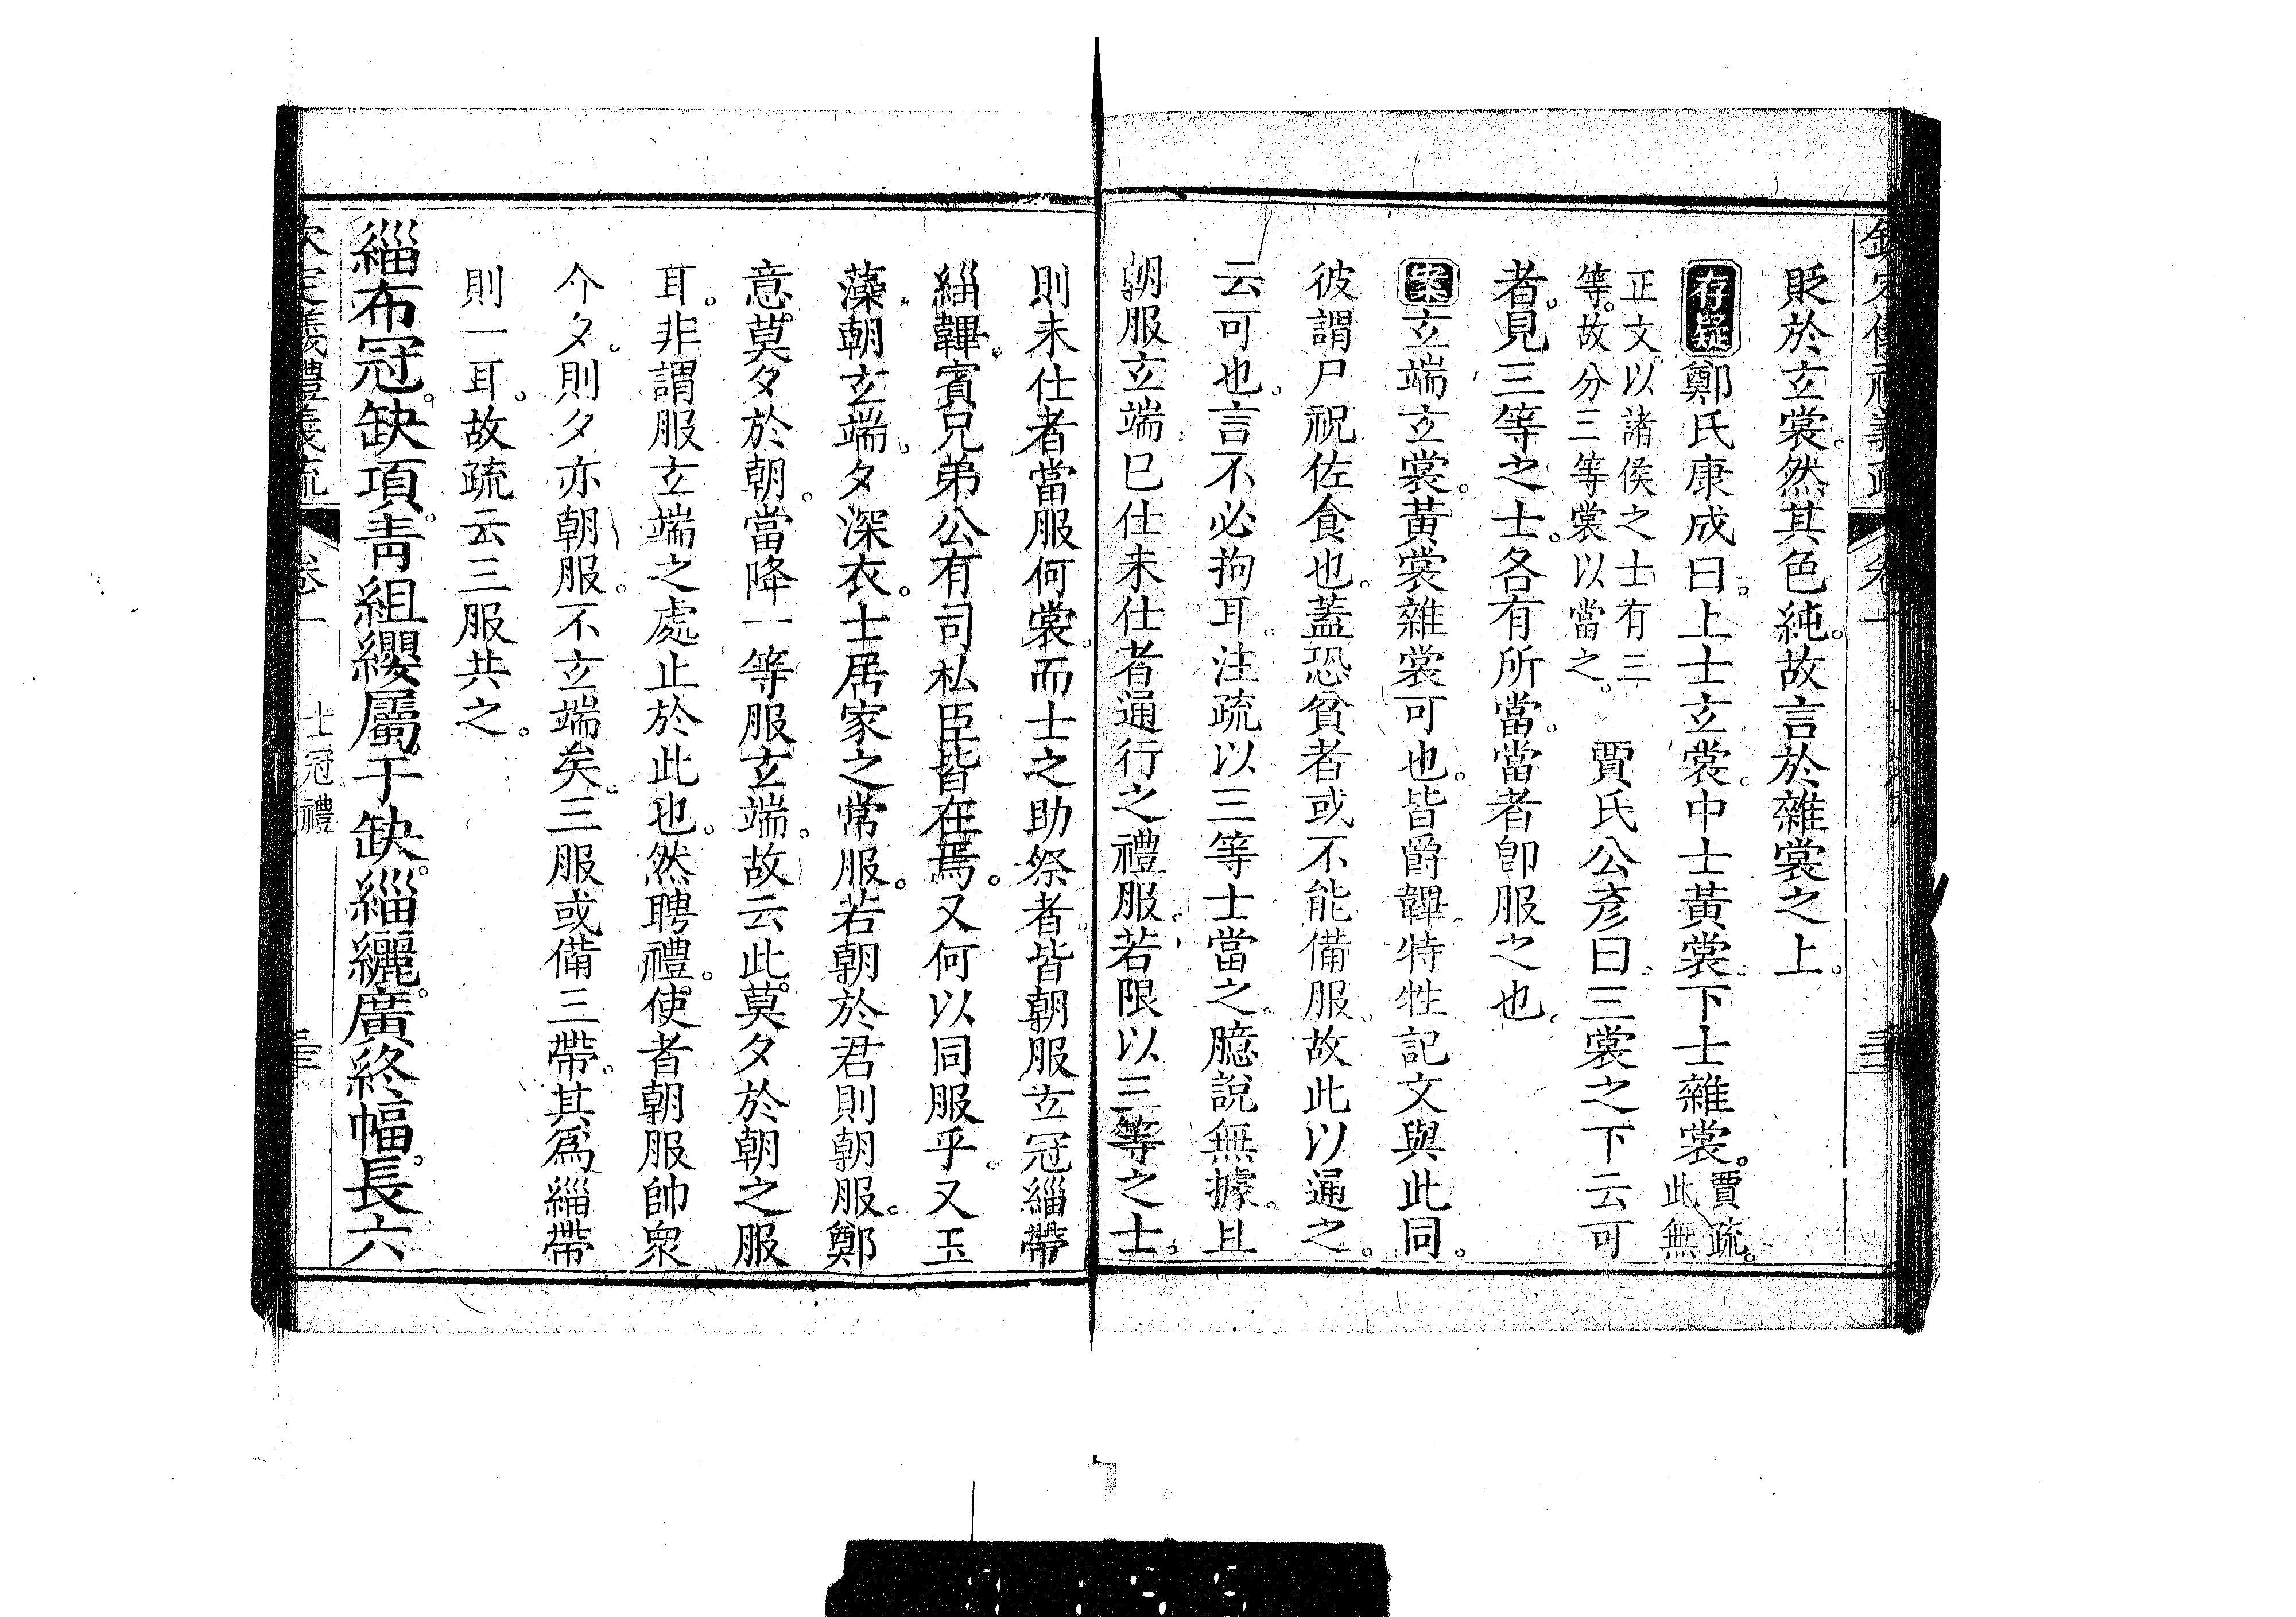 貶於玄裳。然其色純。故言於雜裳之上。
存疑鄭氏康成曰。上士玄裳。中士黃裳。下士雜裳。賈疏。此無
正文。以諸侯之士有三等。故分三等裳以當之。賈氏公彥曰。三裳之下云可
者。見三等之士。各有所當。當者卽服之也。
案玄端玄裳。黃裳雜裳可也。皆爵韠。特牲記文與此同。
彼謂尸祝佐食也。蓋恐貧者或不能備服。故此以通之。
云可也。言不必拘耳。注疏以三等士當之。臆說無據。且
朝服玄端。已仕未仕者通行之禮服。若限以三等之士。
則未仕者當服何裳。而士之助祭者。皆朝服玄冠緇帶
緇韠。賓兄弟公有司私臣皆在焉。又何以同服乎。又玉
藻。朝玄端。夕深衣。士居家之常服。若朝於君則朝服。鄭
意。莫夕於朝。當降一等服玄端。故云此莫夕於朝之服
耳。非謂服玄端之處止於此也。然聘禮。使者朝服帥衆
今夕。則夕亦朝服。不玄端矣。三服或備三帶。其爲緇帶
則一耳。故疏云三服共之。
緇布冠。缺項。靑組纓屬于缺。緇纚。廣終幅。長六
欽定義禮義疏 卷一 士冠禮